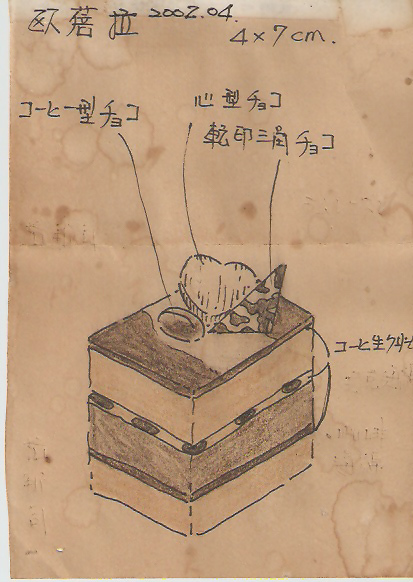 欧蓓拉 2002.04.
4×7cm.
コーヒー型チョコ
心型チョコ
転印三角チョコ
コーヒ生クリーム